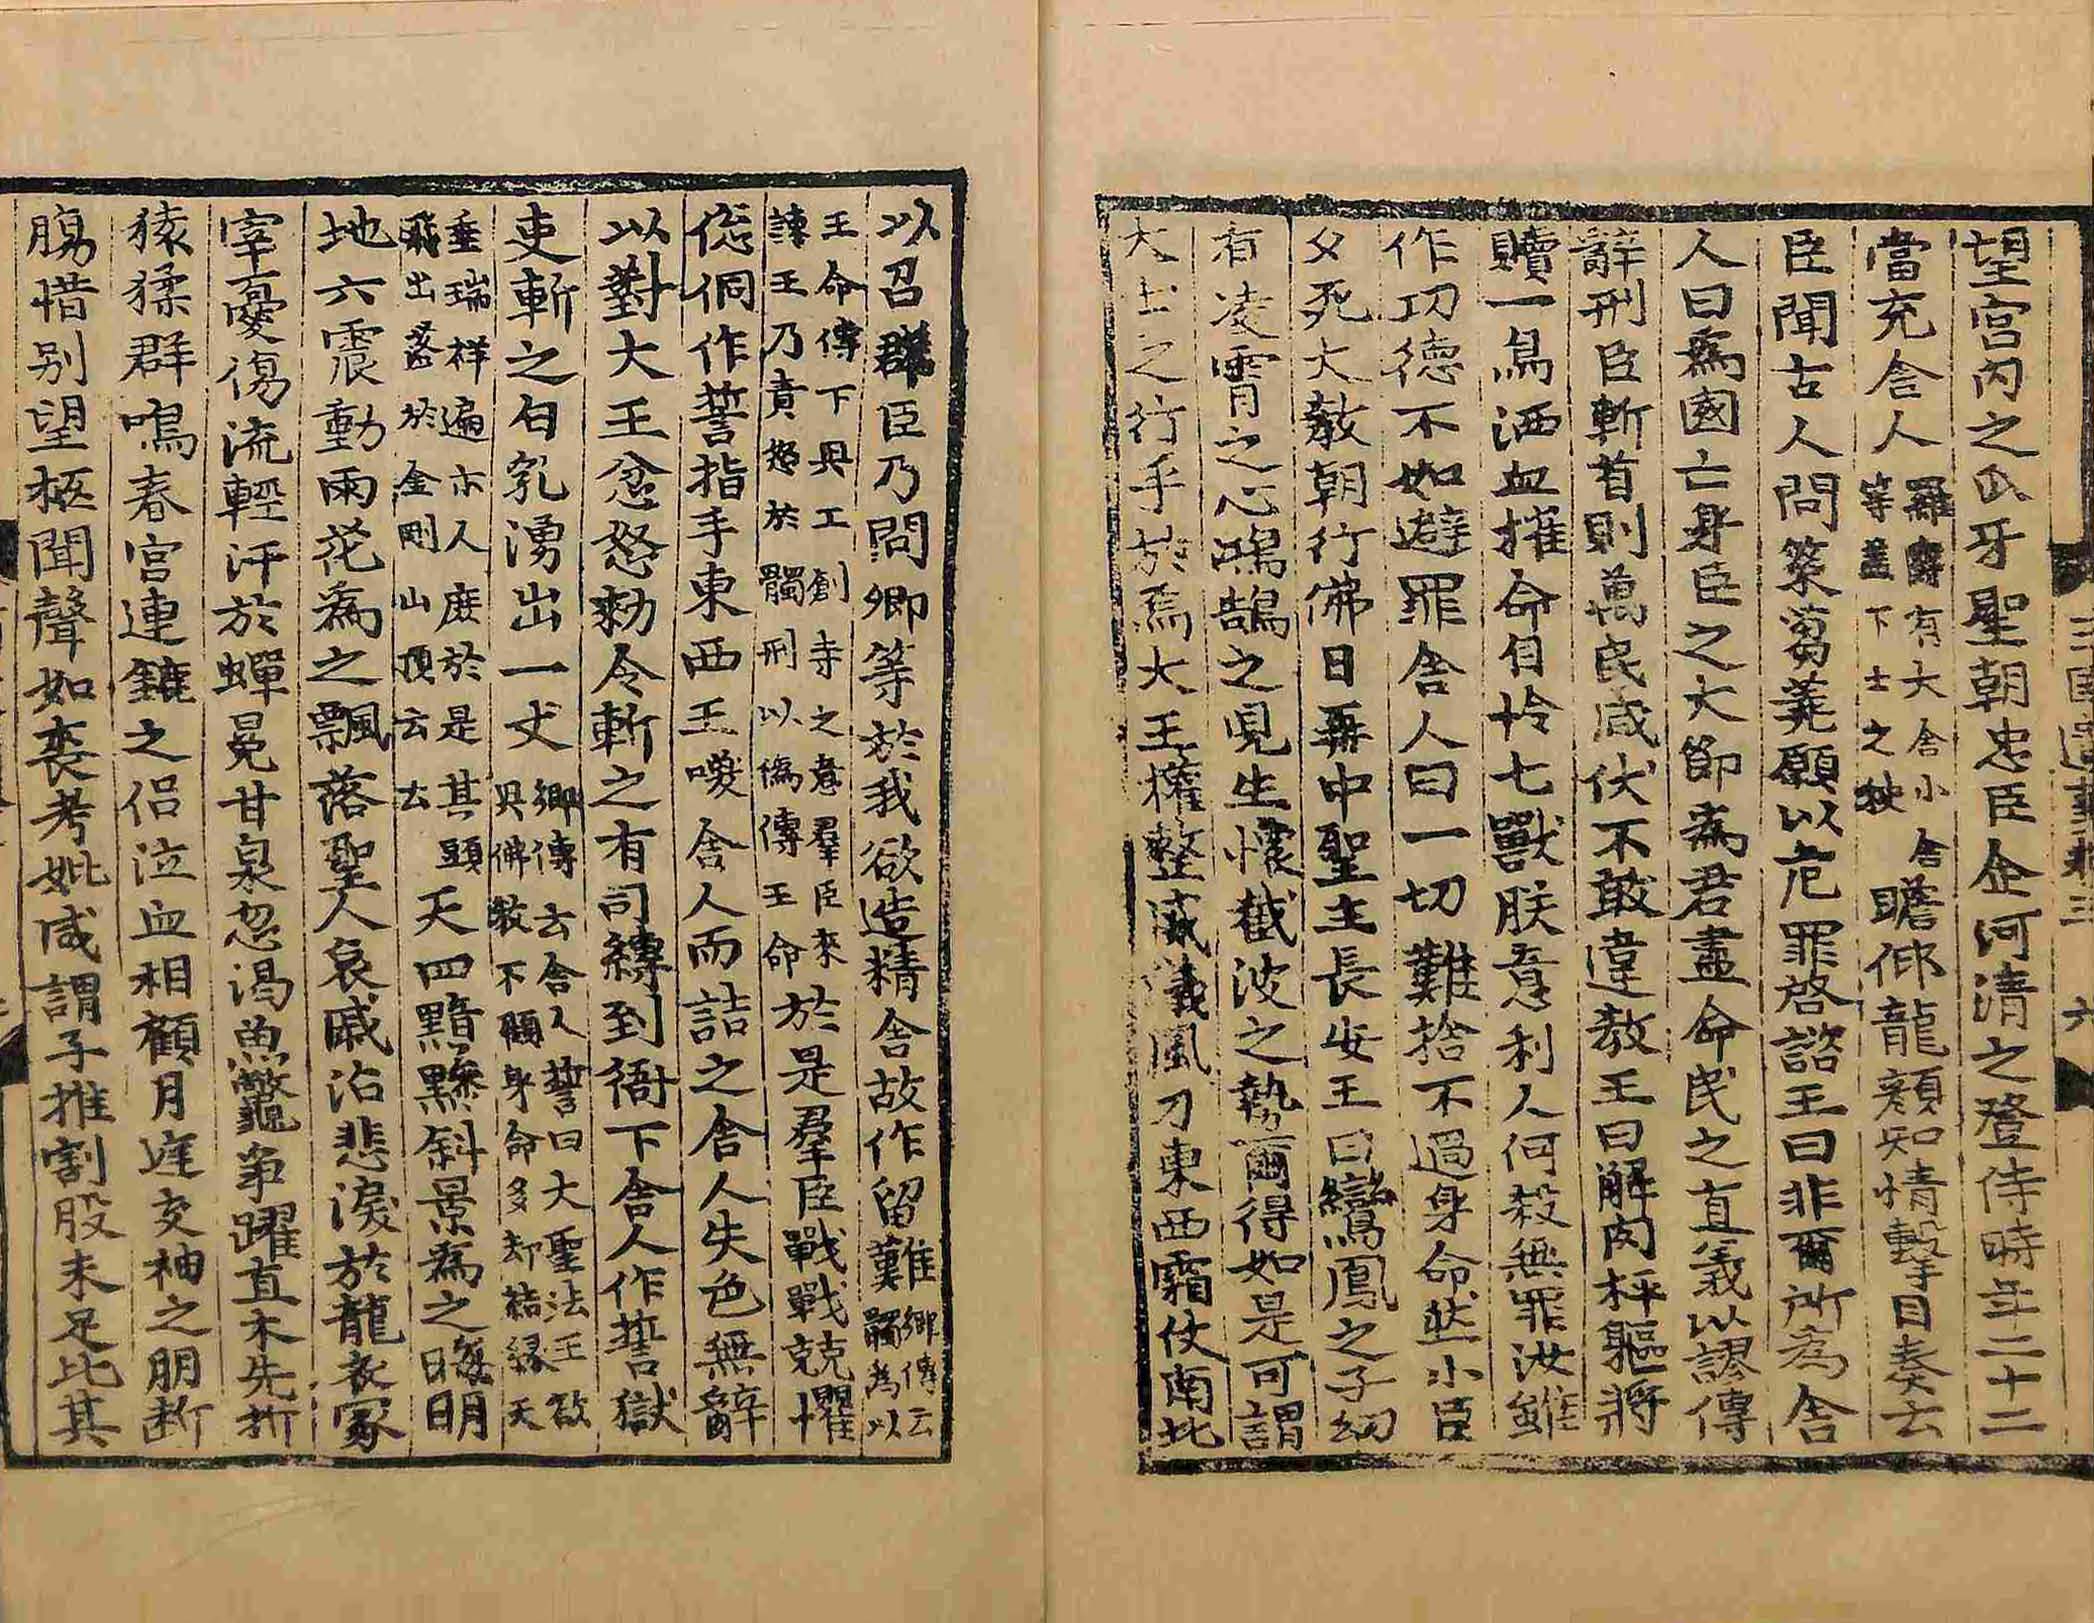 三國遺事卷三 六
望宮内之爪牙聖朝忠臣企河清之登侍時年二十二
當充舍人羅爵有大舍小舍等盖下士之秩瞻仰龍顔知情擊目奏云
臣聞古人問策蒭蕘願以危罪啓諮王曰非爾所為舍
人曰為國亡身臣之大節為君盡命民之直義以謬傳
辭刑臣斬首則萬民咸伏不敢違教王曰解肉枰軀將
贖一鳥洒血摧命自怜七獸朕意利人何殺無罪汝雖
作功德不如避罪舍人曰一切難捨不過身命然小臣
夕死大教朝行佛日再中聖主長安王曰鸞鳳之子幼
有凌霄之心鴻鵠之児生懷截波之勢爾得如是可謂
大士之行乎於焉大王權整威儀風刀東西霜仗南北
以召群臣乃問卿等於我欲造精舍故作留難鄕傳云髑為以
王命傳下興工創寺之意羣臣來諫王乃責怒於髑刑以偽傳王命於是羣臣戰戰兢懼
傯侗作誓指手東西王喚舍人而詰之舍人失色無辭
以對大王忿怒勑令斬之有司縛到衙下舍人作誓獄
吏斬之白乳湧出一丈鄕傳云舍人誓曰大聖法王欲興佛教不顧身命多却結縁天
垂瑞祥遍示人庶於是其頭飛出落於金剛山頂云云天四黯黲斜景為之晦明
地六震動雨花為之飄落聖人哀戚沾悲淚於龍衣冢
宰憂傷流輕汗於蟬冕甘泉忽渴魚鼈爭躍直木先折
猿猱群鳴春宮連鑣之侶泣血相顧月庭交袖之朋断
膓惜别望柩聞聲如喪考妣咸謂子推割股未足比其